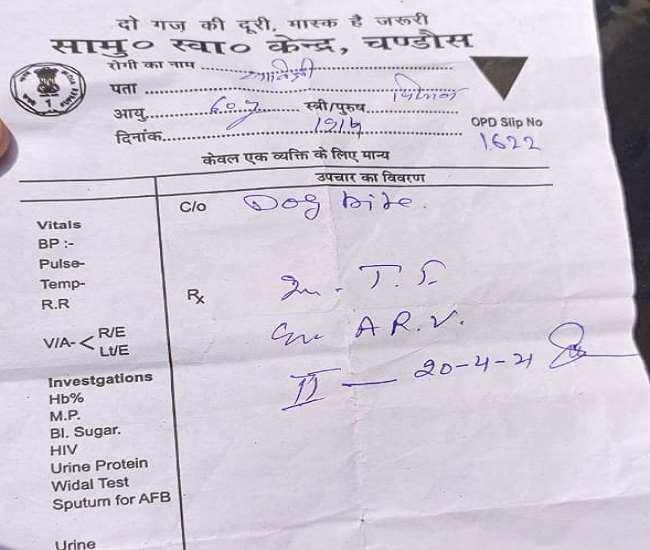 दो गज़ की दूरी, मास्क है जरूरी
सामु० स्वा० केन्द्र, चण्डौस
रोगी का नाम
पता
आयु 60y स्त्री/पुरुष
दिनांक
OPD Slip No
1622
केवल एक व्यक्ति के लिए मान्य
उपचार का विवरण
C/o Dog bite.
Vitals
BP :-
Pulse-
Temp-
R.R
Rx
T.T
A R.V.
V/A- < R/E
Lt/E
II — 20-4-21
Investgations
Hb%
M.P.
Bl. Sugar.
HIV
Urine Protein
Widal Test
Sputum for AFB
Urine